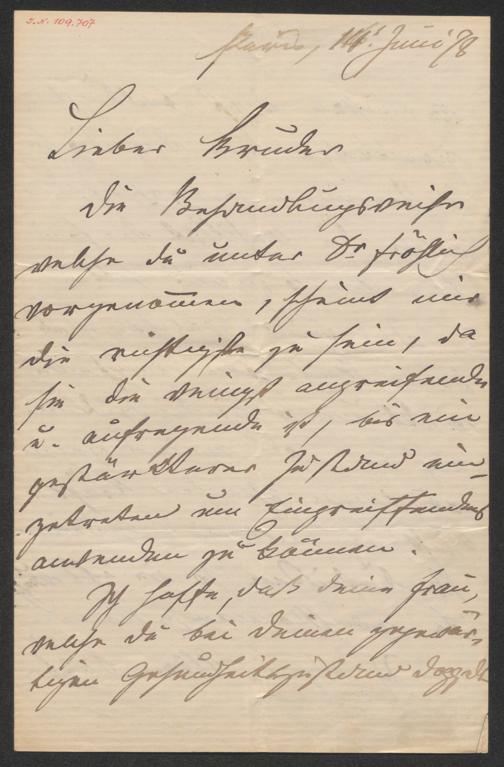 I.N. 109.707
Paris, 14t Juni 78
Lieber Bruder
die Behandlungsweise
welche du unter Dr Fröhlich
vorgenommen, scheint mir
die richtigste zu sein, da
sie die wenigst angreifende
u. aufregende ist, bis ein
gestärkterer Zustand ein-
getreten um Eingreiffenderes
anwenden zu können.
Ich hoffe, daß deine Frau,
welche du bei deinem gegenwär-
tigen Gesundheitszustand doppelt